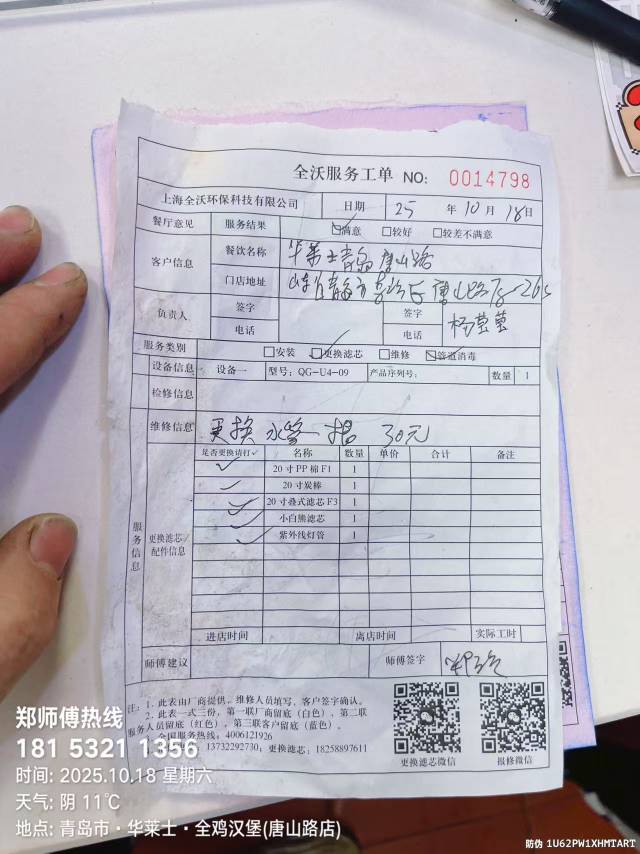 全沃服务工单 NO: 0014798
上海全沃环保科技有限公司 日期 25 年 10 月 18 日
餐厅意见 服务结果 ☑满意 □较好 □较差不满意
客户信息 餐饮名称 华莱士青岛唐山路
门店地址 山东省青岛市 唐山路
负责人 签字 签字
电话 电话
服务类别 □安装 ☑更换滤芯 □维修 □管道消毒
设备信息 设备一 型号: QG-U4-09 产品序列号: 数量 1
检修信息
维修信息 更换水管 30元
服务信息 更换滤芯/配件信息
是否更换请打✓ 名称 数量 单价 合计 备注
✓ 20寸PP棉F1 1
✓ 20寸炭棒 1
✓ 20寸叠式滤芯F3 1
✓ 小白熊滤芯 1
✓ 紫外线灯管 1
进店时间 离店时间 实际工时
师傅建议 师傅签字
注: 1. 此表由厂商提供。维修人员填写、客户签字确认。
2. 此表一式三份,第一联厂商留底(白色),第二联
服务人员留底(红色),第三联客户留底(蓝色)。
全国服务热线: 4006121926
13732292730; 更换滤芯: 18258897611
更换滤芯微信 报修微信
郑师傅热线
181 5321 1356
时间: 2025.10.18 星期六
天气: 阴 11℃
地点: 青岛市·华莱士·全鸡汉堡(唐山路店)
防伪 1U62PW1XHMTART